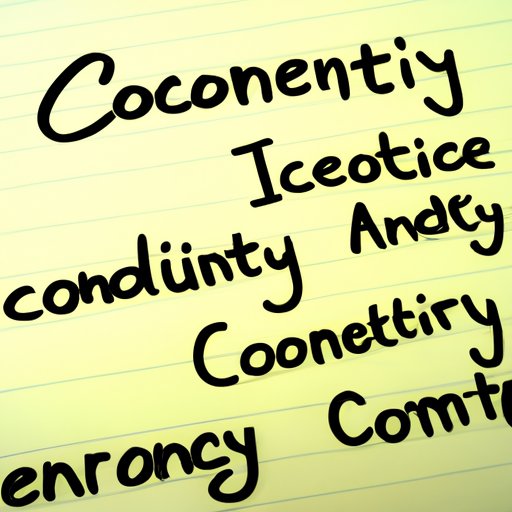 Coconentiy
Iceotice
condiünty Andey
Coonettiry
enroncy Comt